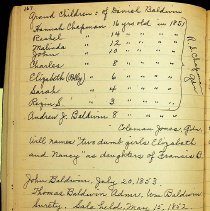 167
Grand Children: of Daniel Baldwin
Hannah Chapman 16 yrs old in 1851
Rachel 14 " " "
Malinda 12 " " "
John 10 " " "
Charles 8 " " "
Elizabeth (Polly) 6 " " "
Sarah 4 " " "
Rezin S. 3 " " "
Andrew J. Baldwin 8 " " "
Coleman Jones, Gdn.
Will names "two dumb girls Elizabeth
and Nancy as daughters of Francis B.
John Baldwin, July 20, 1853.
Thomas Baldwin Admr, Wm Baldwin
Surety. Sale held, May 15, 1852